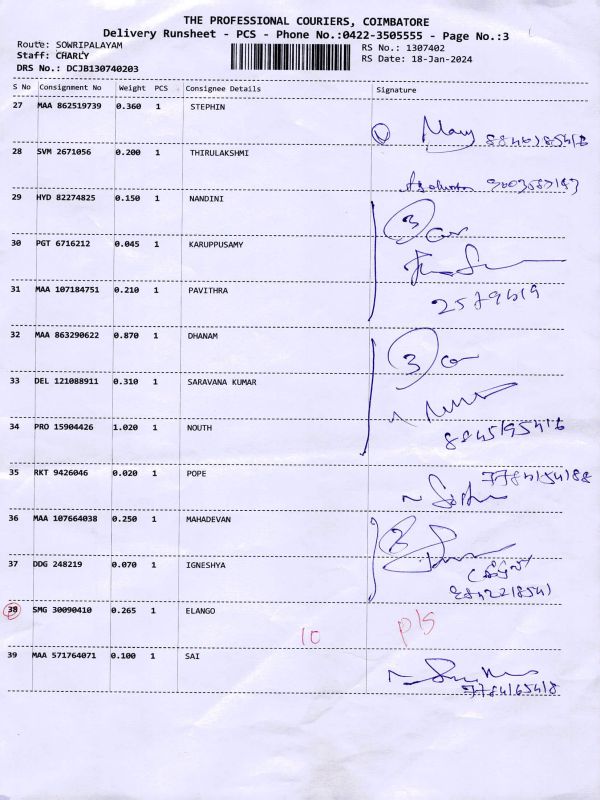 THE PROFESSIONAL COURIERS, COIMBATORE
Delivery Runsheet - PCS - Phone No.:0422-3505555 - Page No.:3
Route: SOWRIPALAYAM RS No.: 1307402
Staff: CHARLY RS Date: 18-Jan-2024
DRS No.: DCJB130740203
S No Consignment No Weight PCS Consignee Details Signature
27 MAA 862519739 0.360 1 STEPHIN
Mary
28 SVM 2671056 0.200 1 THIRULAKSHMI
29 HYD 82274825 0.150 1 NANDINI
3
30 PGT 6716212 0.045 1 KARUPPUSAMY
31 MAA 107184751 0.210 1 PAVITHRA
2579619
32 MAA 863290622 0.870 1 DHANAM
3
33 DEL 121088911 0.310 1 SARAVANA KUMAR
34 PRO 15904426 1.020 1 NOUTH
35 RKT 9426046 0.020 1 POPE
36 MAA 107664038 0.250 1 MAHADEVAN
2
37 DDG 248219 0.070 1 IGNESHYA
38 SMG 30090410 0.265 1 ELANGO
P/S
39 MAA 571764071 0.100 1 SAI